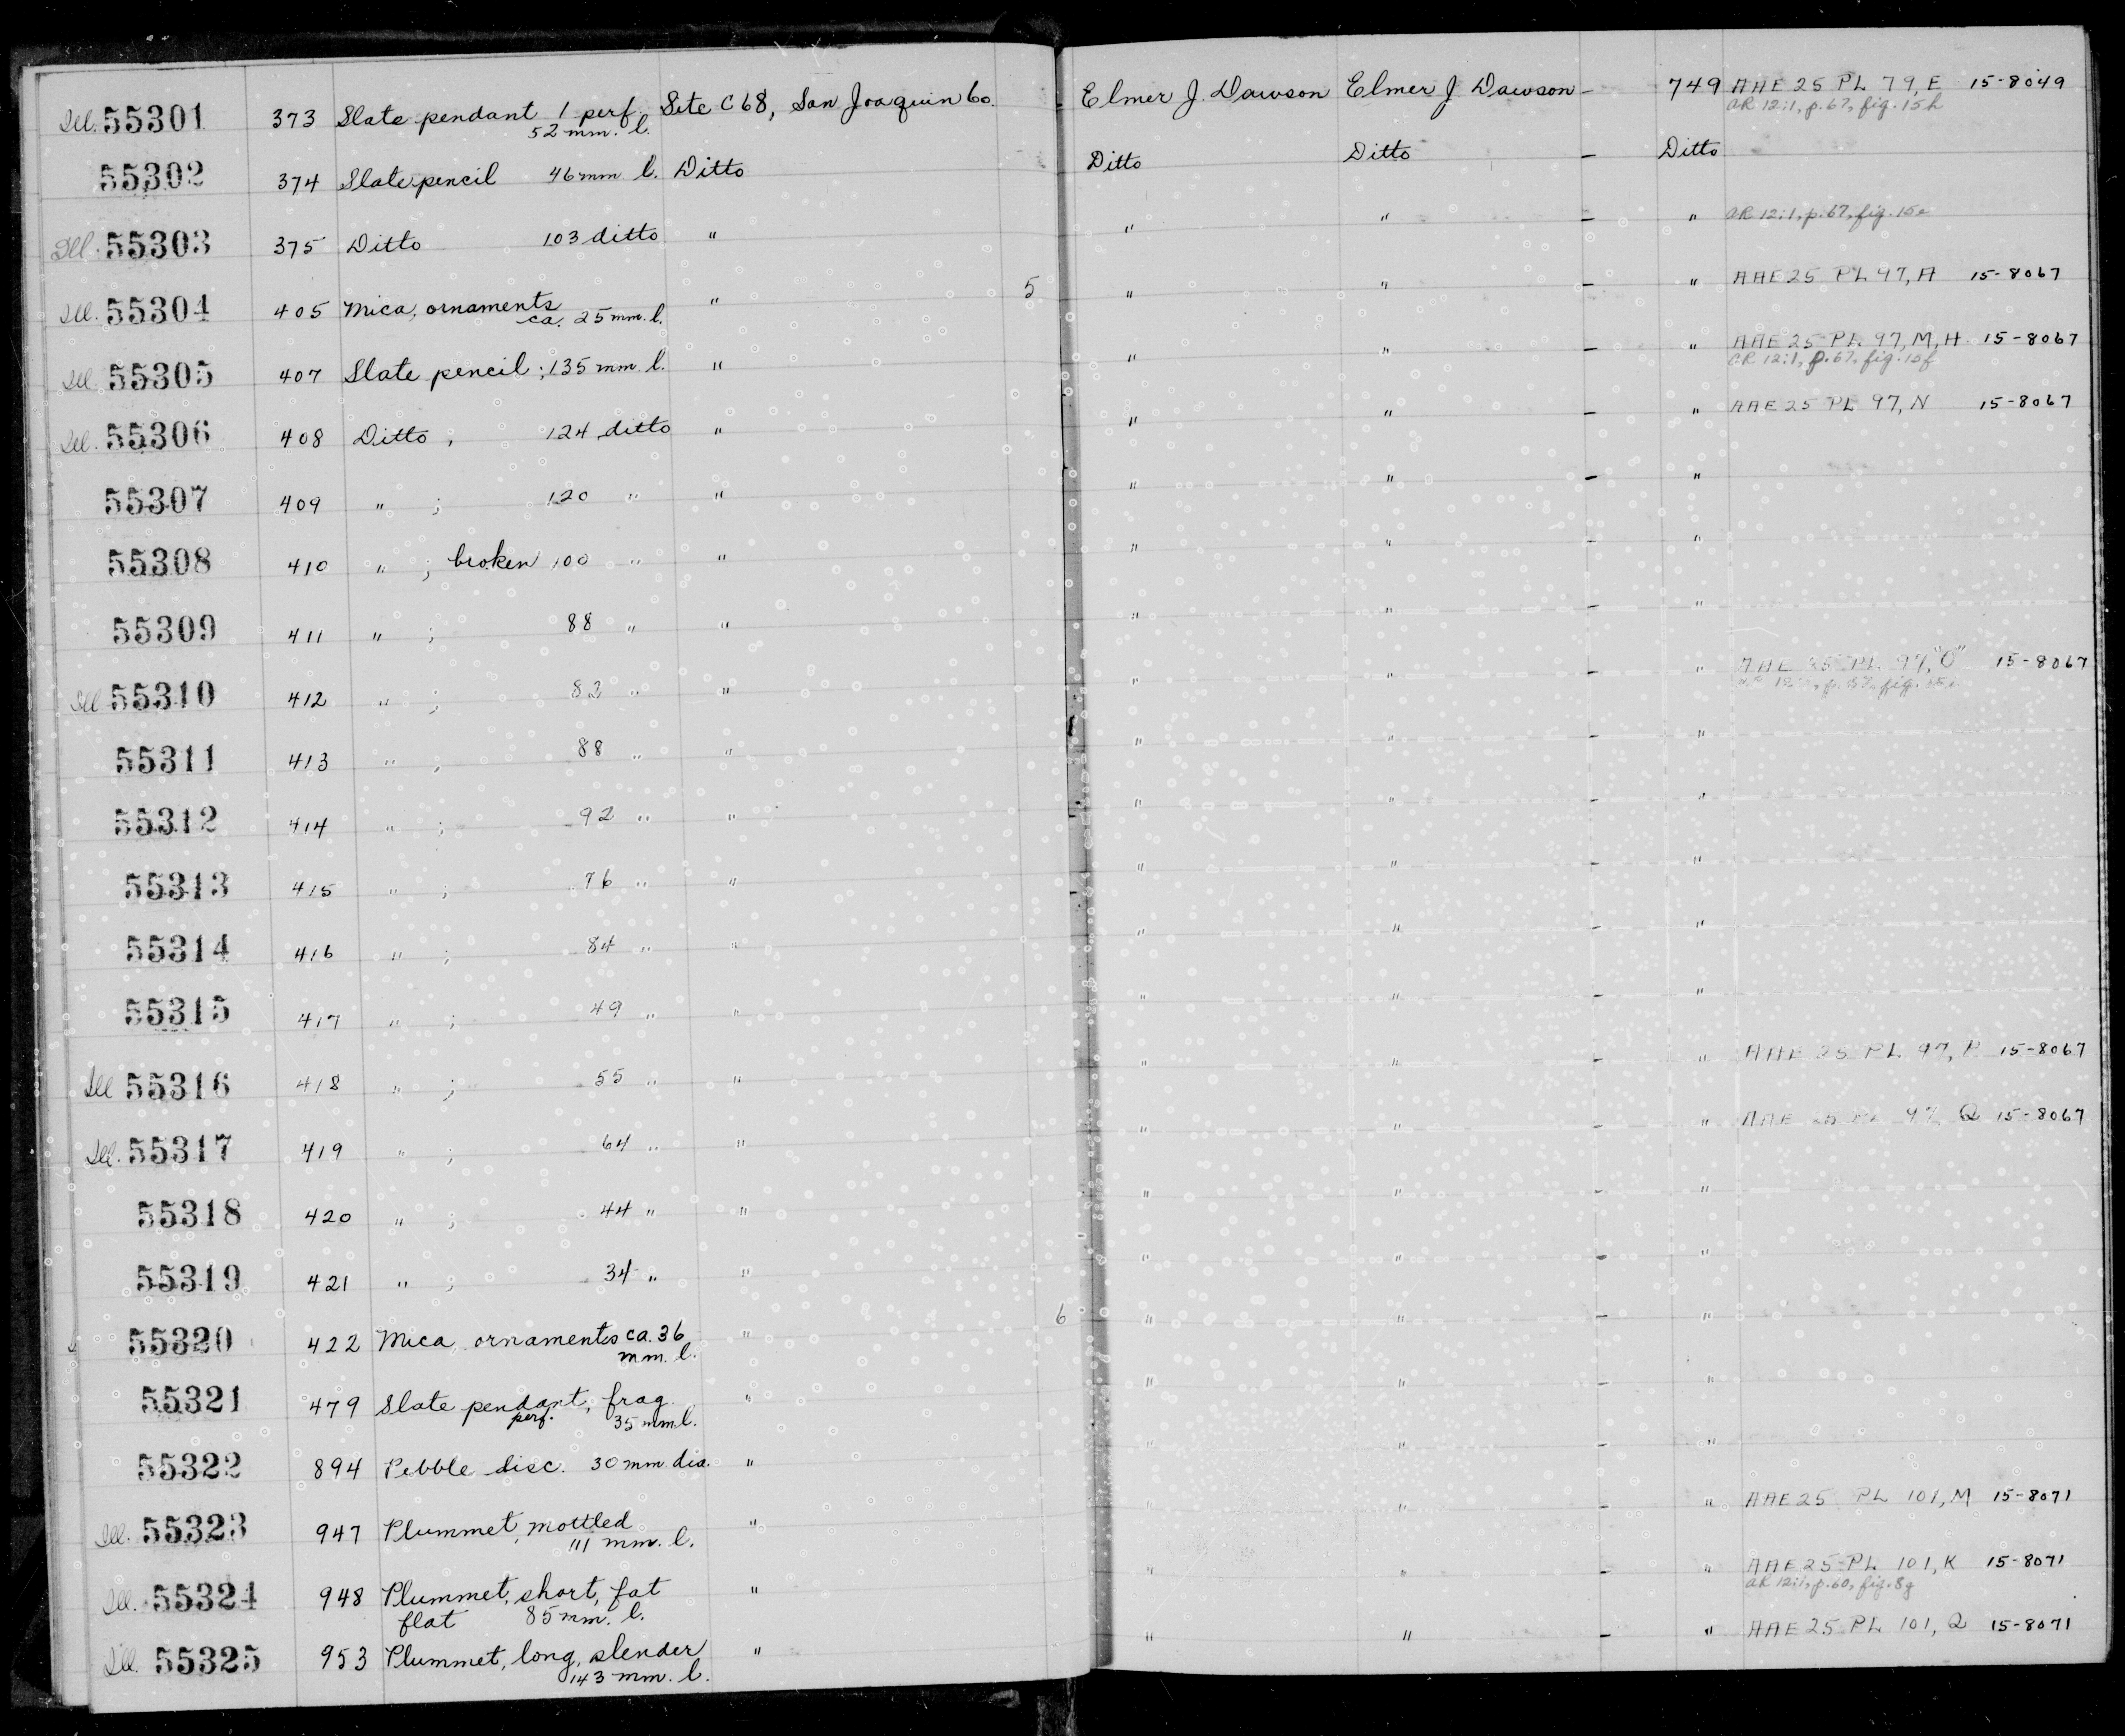 Ill. 55301 373 Slate pendant 1 perf. Site C68, San Joaquin Co. Elmer J. Dawson Elmer J. Dawson - 749 AAE 25 PL 79, E 15-8049
52 mm. l. AR 12:1, p. 67, fig. 15h
55302 374 Slate pencil 46 mm l. Ditto Ditto Ditto - Ditto
Ill. 55303 375 Ditto 103 ditto " " " - " AR 12:1, p. 67, fig. 15e
Ill. 55304 405 Mica, ornaments " 5 " " - " AAE 25 PL 97, A 15-8067
ca. 25 mm. l.
Ill. 55305 407 Slate pencil; 135 mm l. " " " - " AAE 25 PL 97, M, H 15-8067
AR 12:1, p. 67, fig. 15f
Ill. 55306 408 Ditto ; 124 ditto " " " - " AAE 25 PL 97, N 15-8067
55307 409 " ; 120 " " " " - "
55308 410 " ; broken 100 " " " " - "
55309 411 " ; 88 " " " " - "
Ill 55310 412 " ; 82 " " " " - " AAE 25 PL 97, "O" 15-8067
55311 413 " ; 88 " " " " - "
55312 414 " ; 92 " " " " - "
55313 415 " ; 76 " " " " - "
55314 416 " ; 84 " " " " - "
55315 417 " ; 49 " " " " - "
Ill 55316 418 " ; 55 " " " " - " AAE 25 PL 97, P 15-8067
Ill. 55317 419 " ; 64 " " " " - " AAE 25 PL 97, Q 15-8067
55318 420 " ; 44 " " " " - "
55319 421 " ; 34 " " " " - "
55320 422 Mica, ornaments ca. 36 " 6 " " - "
mm. l.
55321 479 Slate pendant, frag. " " " - "
perf. 35 mm l.
55322 894 Pebble disc. 30 mm dia. " " " - "
Ill. 55323 947 Plummet, mottled " " " - " AAE 25 PL 101, M 15-8071
111 mm. l.
Ill. 55324 948 Plummet, short, fat " " " - " AAE 25 PL 101, K 15-8071
flat 85 mm. l. AR 12:1, p. 60, fig. 8g
Ill. 55325 953 Plummet, long, slender " " " - " AAE 25 PL 101, Q 15-8071
143 mm. l.